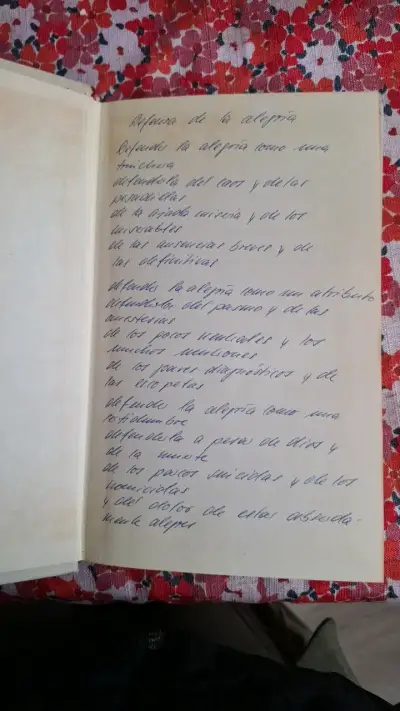 Defensa de la alegría
Defender la alegría como una
trinchera
defenderla del caos y de las
pesadillas
de la ajada miseria y de los
miserables
de las ausencias breves y de
las definitivas
defender la alegría como un atributo
defenderla del pasmo y de las
anestesias
de los pocos neutrales y los
muchos neutrones
de los graves diagnósticos y de
las escopetas
defender la alegría como una
certidumbre
defenderla a pesar de dios y
de la muerte
de los parcos suicidas y de los
homicidas
y del dolor de estar absurda-
mente alegres